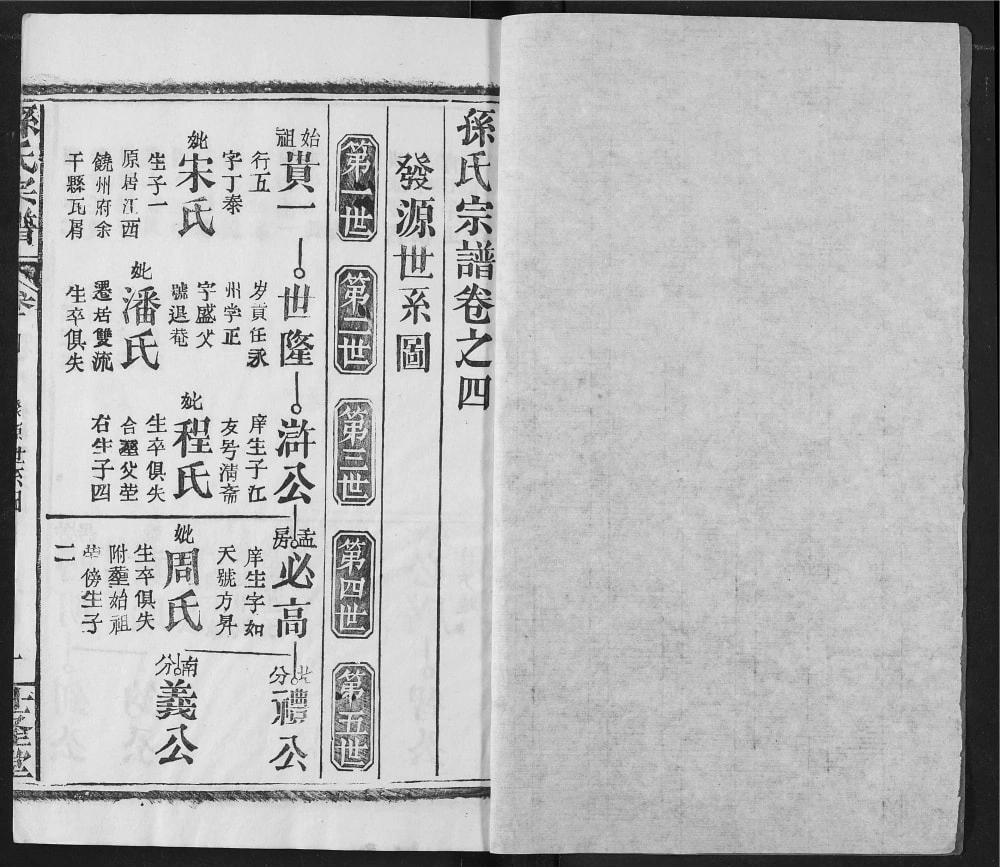 孫氏宗譜卷之四
發源世系圖
第一世
第二世
第三世
第四世
第五世
始祖
貴一
行五
字丁泰
妣
宋氏
生子一
原居江西
饒州府余
干縣瓦屑
世隆
岁貢任永
州学正
字盛父
號退菴
妣
潘氏
遷居雙流
生卒俱失
滸公
庠生子江
友号清斋
妣
程氏
生卒俱失
合塟父茔
右生子四
孟房
必高
庠生字如
天號方昇
妣
周氏
生卒俱失
附塟始祖
傍生子
二
北分
禮公
南分
義公
孫氏宗譜